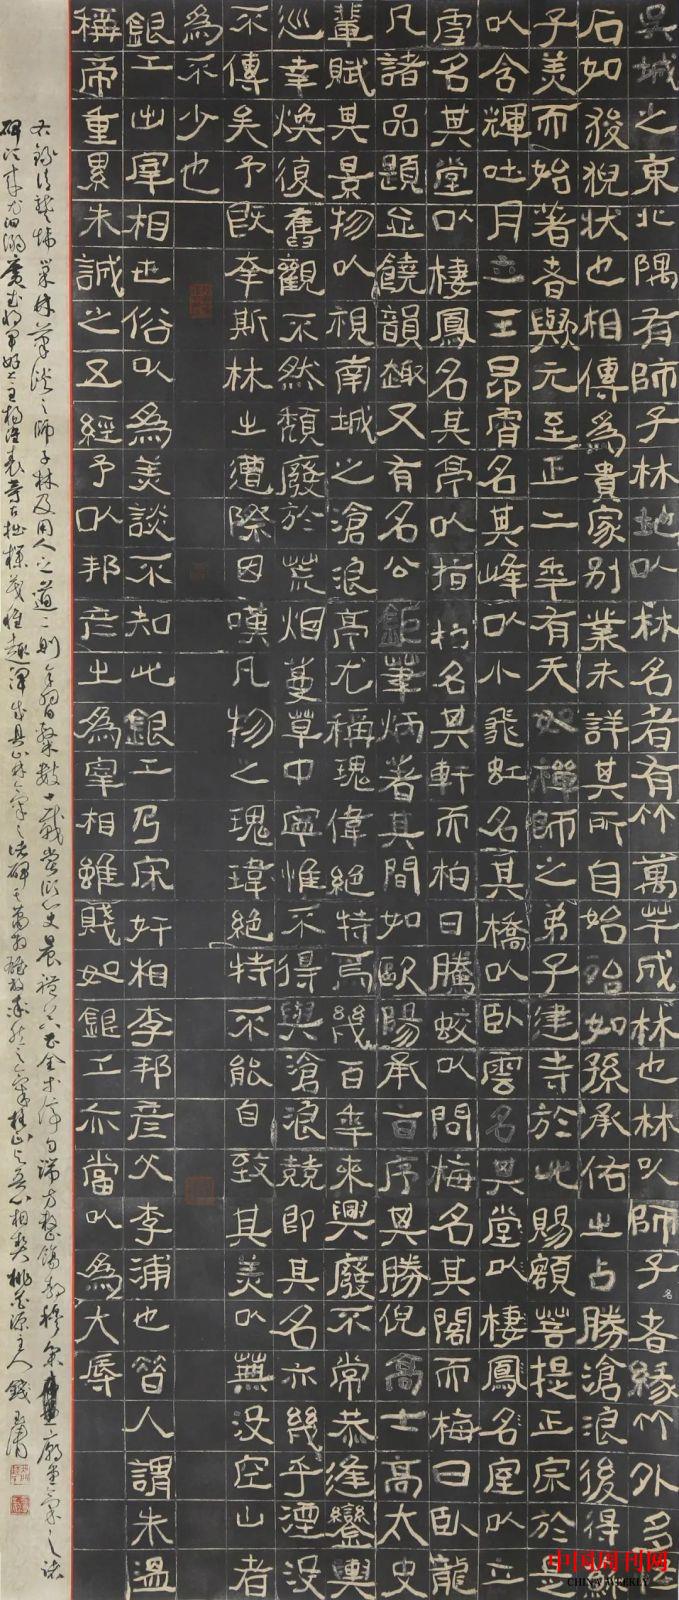 吳城之東北隅有師子林地以林名者有竹萬竿成林也林以師子名者緣竹外多
石如狻猊狀也相傳為貴家別業未詳其所自始始如孫承佑之占勝滄浪後得
子美而始著者歟元至正二年有天如禪師之弟子建寺於此賜額菩提正宗於是
以含輝吐月立玉昂霄名其峰以小飛虹名其橋以臥雲名其堂以棲鳳名室以立
雪名其堂以棲鳳名其亭以指柏名其軒而柏曰騰蛟以問梅名其閣而梅曰臥龍
凡諸品題並饒韻趣又有名公鉅筆炳著其間如歐陽承旨序其勝倪高士高太史
輩賦其景物以視南城之滄浪亭尤稱瑰偉絕特焉幾百年來興廢不常恭逢鑾輿
巡幸煥復舊觀不然頹廢於荒烟蔓草中寧惟不得與滄浪競即其名亦幾乎湮沒
不傳矣予既幸斯林之遭際因嘆凡物之瑰瑋絕特不能自致其美以蕪沒空山者
為不少也
銀工出宰相世俗以為美談不知此銀工乃宋奸相李邦彥父李浦也昔人謂朱溫
稱帝重累朱誠之五經予以邦彥之為宰相雖賤如銀工亦當以為大辱
桃花源主人錢玉清
中国周刊网
CHINA WEEKLY